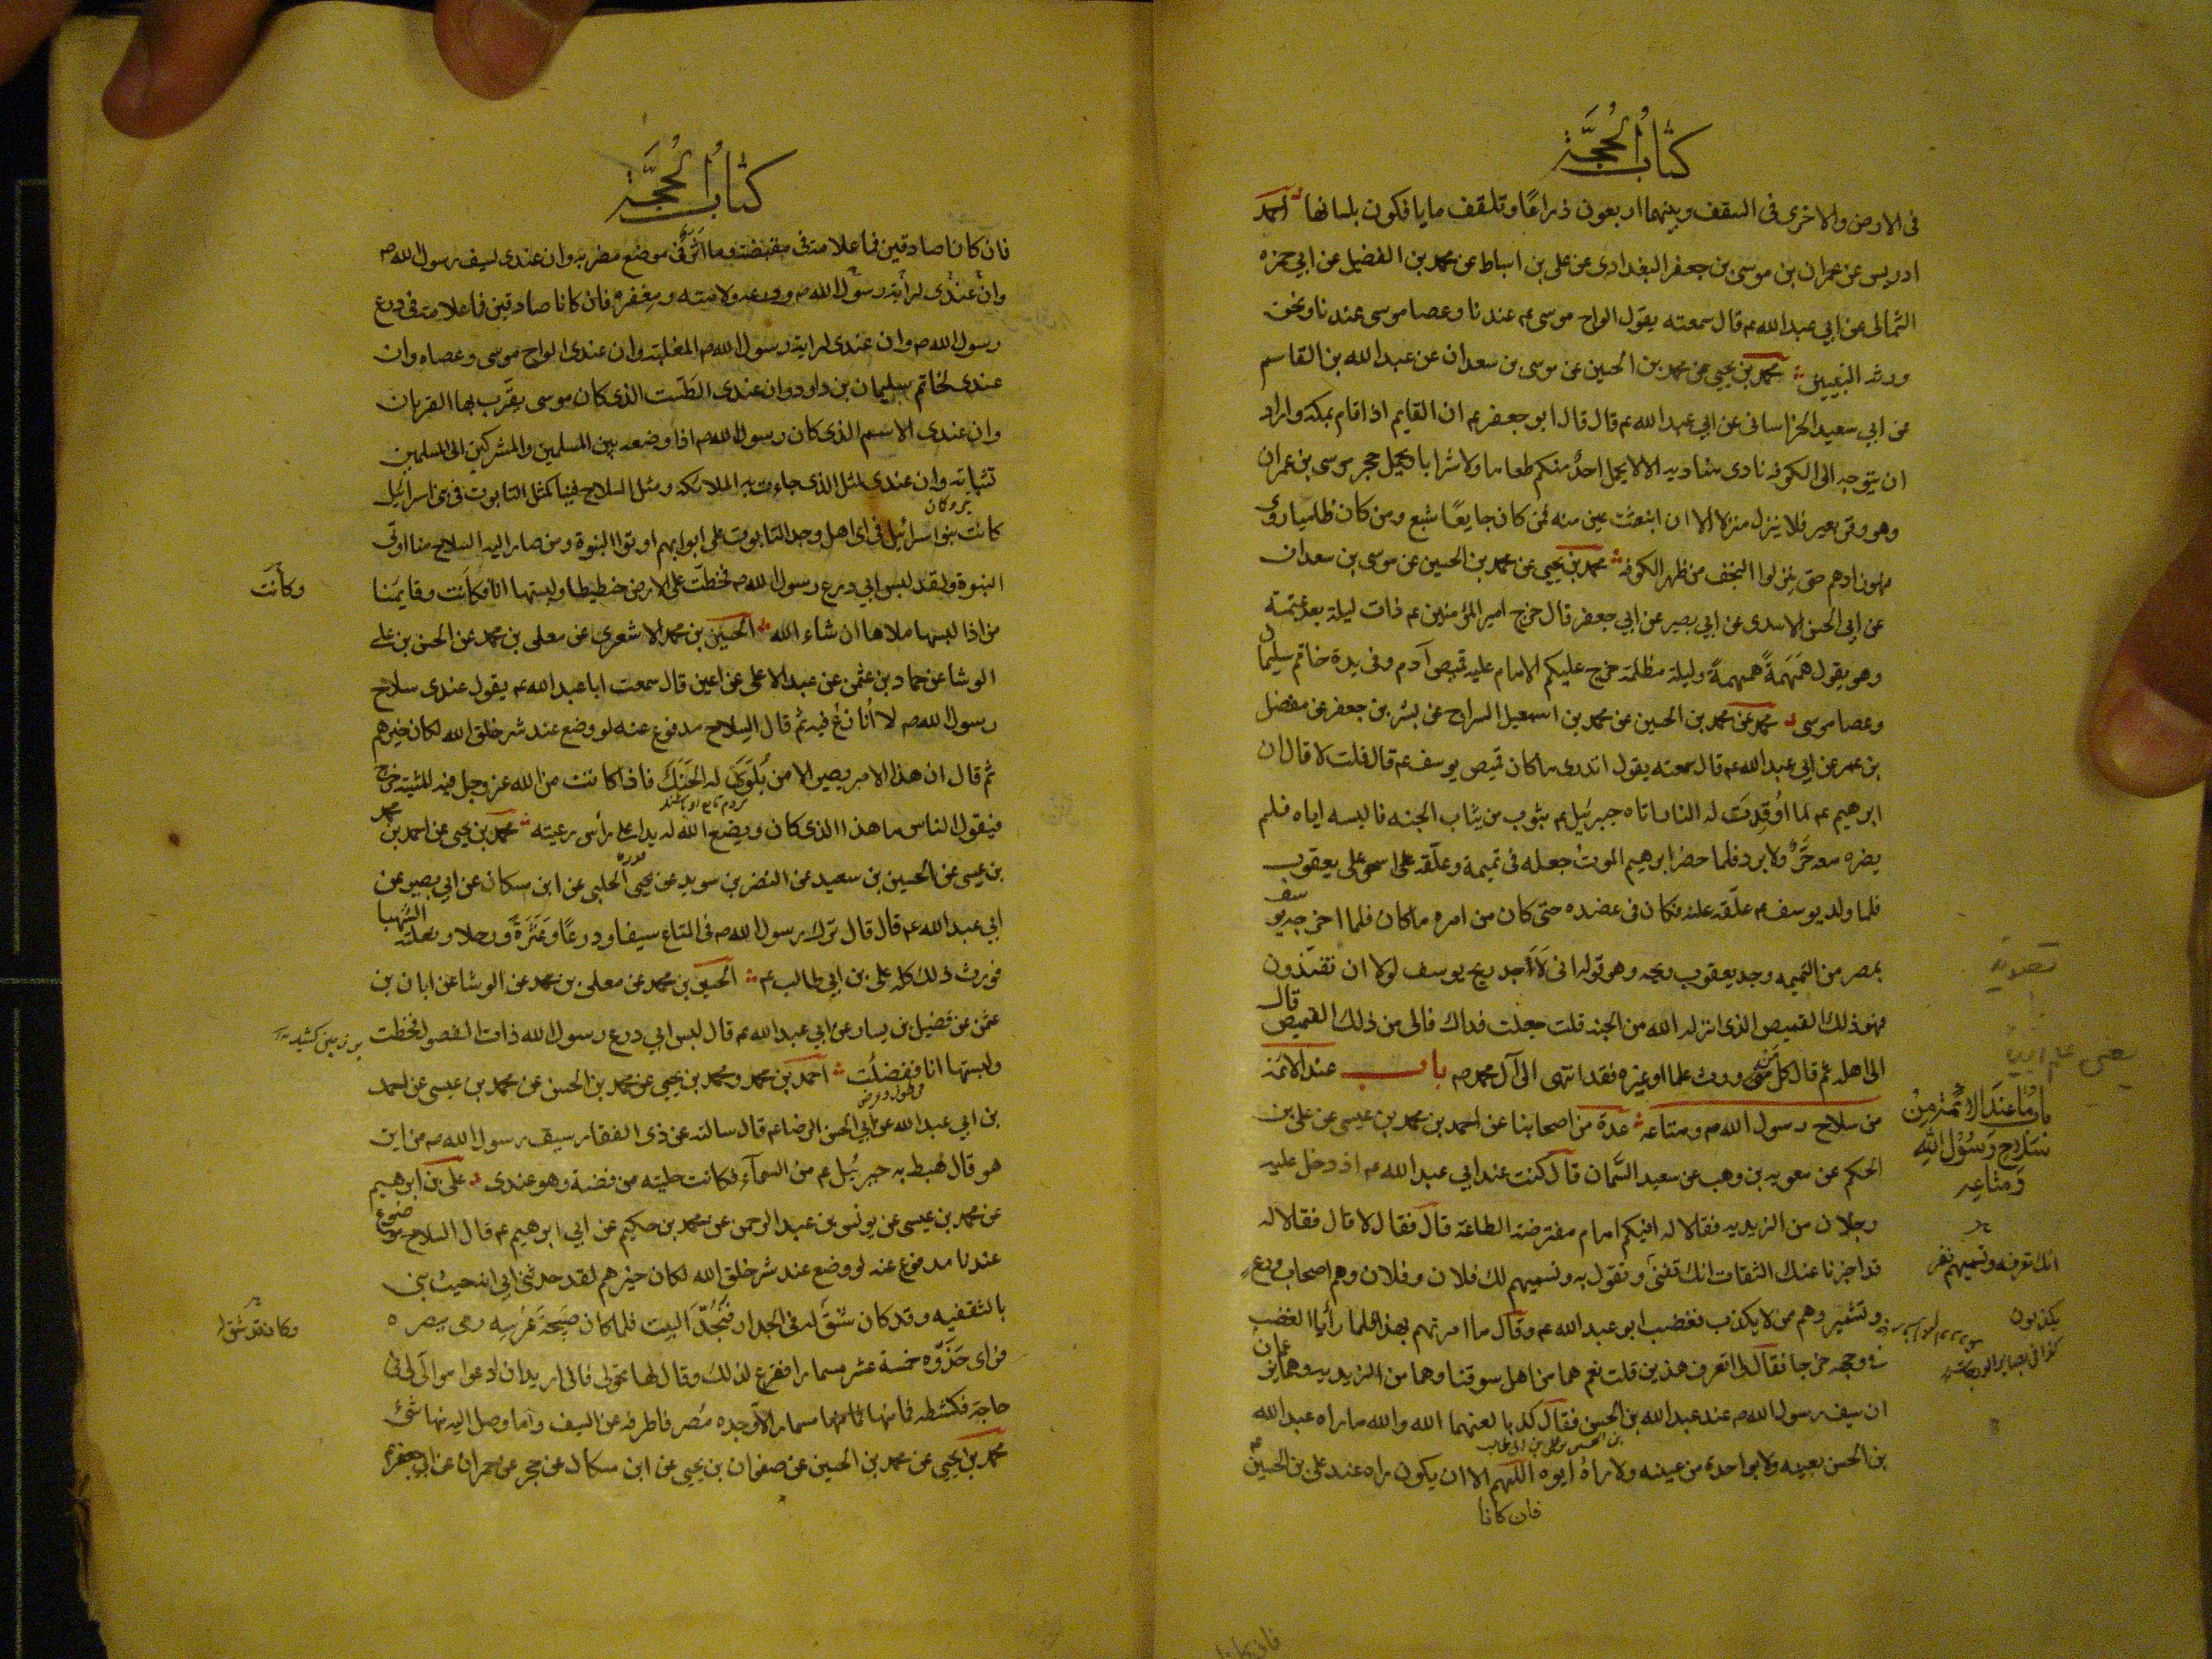 كتاب الحجة
في الارض والاخرى في السقف وبينهما اربعون ذراعًا وتلقف ما يافكون بلسانها احمد
ادريس عن عمران بن موسى بن جعفر البغدادى عن على بن اسباط عن محمد بن الفضيل عن ابي حمزه
الثمالى عن ابي عبد الله ع قال سمعته يقول الواح موسى ع عندنا وعصا موسى عندنا ونحن
ورثه النبيين محمد بن يحيى عن محمد بن الحسين عن موسى بن سعدان عن عبد الله بن القاسم
عن ابي سعيد الخراسانى عن ابي عبد الله ع قال قال ابو جعفر ع ان القايم اذا قام بمكة واراد
ان يتوجه الى الكوفه نادى مناديه الا لا يحمل احدٌ منكم طعاما ولا شرابا ويحمل حجر موسى بن عمران
وهو وقر بعير فلا ينزل منزلا الا ان ابنعثت عين منه فمن كان جايعًا شبع ومن كان ظاميا روى
فهو زادهم حتى ينزلوا النجف من ظهر الكوفه محمد بن يحيى عن محمد بن الحسين عن موسى بن سعدان
عن ابي الحسن الاسدى عن ابي بصير عن ابي جعفر قال خرج امير المؤمنين ع ذات ليلة بعد عتمة
وهو يقول همهمةً همهمةً وليلة مظلمة خرج عليكم الامام عليه قميص آدم وفي يدة خاتم سليمان
وعصا موسى محمد عن محمد بن الحسين عن محمد بن اسمعيل السراج عن بشر بن جعفر عن مفضل
بن عمر عن ابي عبد الله ع قال سمعته يقول اتدرى ما كان قميص يوسف ع قال قلت لا قال ان
ابرهيم ع لما اوقدت له النار اتاه جبرئيل ع بثوب من ثياب الجنه فالبسه اياه فلم
يضره معه حرٌّ ولا برد فلما حضر ابرهيم الموت جعله في تميمة وعلّقه على اسحق على يعقوب
فلما ولد يوسف ع علّقه عليه فكان في عضده حتى كان من امره ما كان فلما اخرجه يوسف
بمصر من التميمه وجد يعقوب ريحه وهو قوله انى لأجد ريح يوسف لولا ان تفنّدون
فهو ذلك القميص الذى انزله الله من الجنه قلت جعلت فداك فالى من ذلك القميص قال
الى اهله ثم قال كل نبى ورث علما او غيره فقد انتهى الى آل محمد ص باب عند الائمة
من سلاح رسول الله ص ومتاعه عدة من اصحابنا عن احمد بن محمد بن عيسى عن على بن
الحكم عن معويه بن وهب عن سعيد السّمان قال كنت عند ابي عبد الله ع اذ دخل عليه
رجلان من الزيديه فقالا له افيكم امام مفترضة الطاعة قال فقال لا قال فقالا له
قد اخبرنا عنك الثقات انك تفتى وتقول به ونسميهم لك فلان وفلان وهم اصحاب ورع
وتشمير وهم من لا يكذب فغضب ابو عبد الله ع وقال ما امرتهم بهذا فلما رأيا الغضب
في وجهه خرجا فقال لى اتعرف هذين قلت نعم هما من اهل سوقنا وهما من الزيديه وهما يزعمان
ان سيف رسول الله ص عند عبد الله بن الحسن فقال كذبا لعنهما الله والله ما راه عبد الله
بن الحسن بعينه ولا بواحدة من عينيه ولا راه ابوه اللهم الا ان يكون راه عند على بن الحسين ع
بن الحسن بن على بن ابى طالب
فان كانا
باب ما عند الائمة من
سلاح رسول الله
ومتاعه
انك تعرفه ونسميهم نفر
يكذبون
كتاب الحجة
فان كانا صادقين فما علامة في مقبضه وما اثر في موضع مضربه وان عندى لسيف رسول الله ص
وان عندى لرأية رسول الله ص ودرعه ولامته ومغفره فان كانا صادقين فما علامة في درع
رسول الله ص وان عندى لراية رسول الله ص المغلبة وان عندى الواح موسى وعصاه وان
عندى لخاتم سليمان بن داود وان عندى الطّست الذى كان موسى يقرّب بها القربان
وان عندى الاسم الذى كان رسول الله ص اذا وضعه بين المسلمين والمشركين لم يصل من المشركين الى المسلمين
نشابة وان عندى لمثل الذى جاءت به الملائكة ومثل السلاح فينا كمثل التابوت في بنى اسرائيل
كانت بنو اسرائيل في اى اهل وجد التابوت على ابوابهم اوتوا النبوة ومن صار اليه السلاح منا اوتى
النبوة ولقد لبس ابي درع رسول الله ص فخطّت على الارض خطيطا ولبستها انا فكانت وقايمنا
من اذا لبسها ملاها ان شاء الله الحسين بن محمد الاشعرى عن معلى بن محمد عن الحسن بن على
الوشا عن حماد بن عثمن عن عبد الاعلى بن اعين قال سمعت ابا عبد الله ع يقول عندى سلاح
رسول الله ص لا اُنازع فيه ثم قال السلاح مدفوع عنه لو وضع عند شر خلق الله لكان خيرهم
ثم قال ان هذا الامر يصير الا من يُلوى له الحَنَك فاذا كانت من الله عز وجل فيه المشية خرج
فيقول الناس ما هذا الذى كان ويضع الله له يدا على رأس رعيته محمد بن يحيى عن احمد بن محمد
بن عيسى عن الحسين بن سعيد عن النضر بن سويد عن يحيى الحلبى عن ابن مسكان عن ابي بصير عن
ابي عبد الله ع قال قال ترك رسول الله ص في المتاع سيفا ودرعًا وعَنَزَةً ورحلا وبغلته الشهبا
فورث ذلك كله على بن ابي طالب ع الحسين بن محمد عن معلى بن محمد عن الوشا عن ابان بن
عثمن عن فضيل بن يسار عن ابي عبد الله ع قال لبس ابي درع رسول الله ذات الفضول فخطت
ولبستها انا ففضلت احمد بن محمد ومحمد بن يحيى عن محمد بن الحسن عن محمد بن عيسى عن احمد
بن ابي عبد الله عن ابي الحسن الرضا ع قال سالته عن ذى الفقار سيف رسول الله ص من اين
هو قال هبط به جبرئيل ع من السمآء فكانت حليته من فضة وهو عندى على بن ابرهيم
عن محمد بن عيسى عن يونس بن عبد الرحمن عن محمد بن حكيم عن ابي ابرهيم ع قال السلاح موضوع
عندنا مدفوع عنه لو وضع عند شر خلق الله لكان خيرهم لقد حدثنى ابي انه حيث بنى
بالثقفيه وقد كان شُقّ له في الجدار فنُجّد البيت فلما كان صبحة عُرسه رمى ببصره
فراى حَذْوَه خمسة عشر مسمارا ففزع لذلك وقال لها تحولى فانى اريد ان ادعو موالىّ في
حاجة فكشطه فما منها مسمار الا وجده مُصر فا طرفه عن السيف وما وصل اليه منها شئ
محمد بن يحيى عن محمد بن الحسين عن صفوان بن يحيى عن ابن مسكان عن حجر عن حمران عن ابي جعفر ع
وكانت
وكان قد شق له